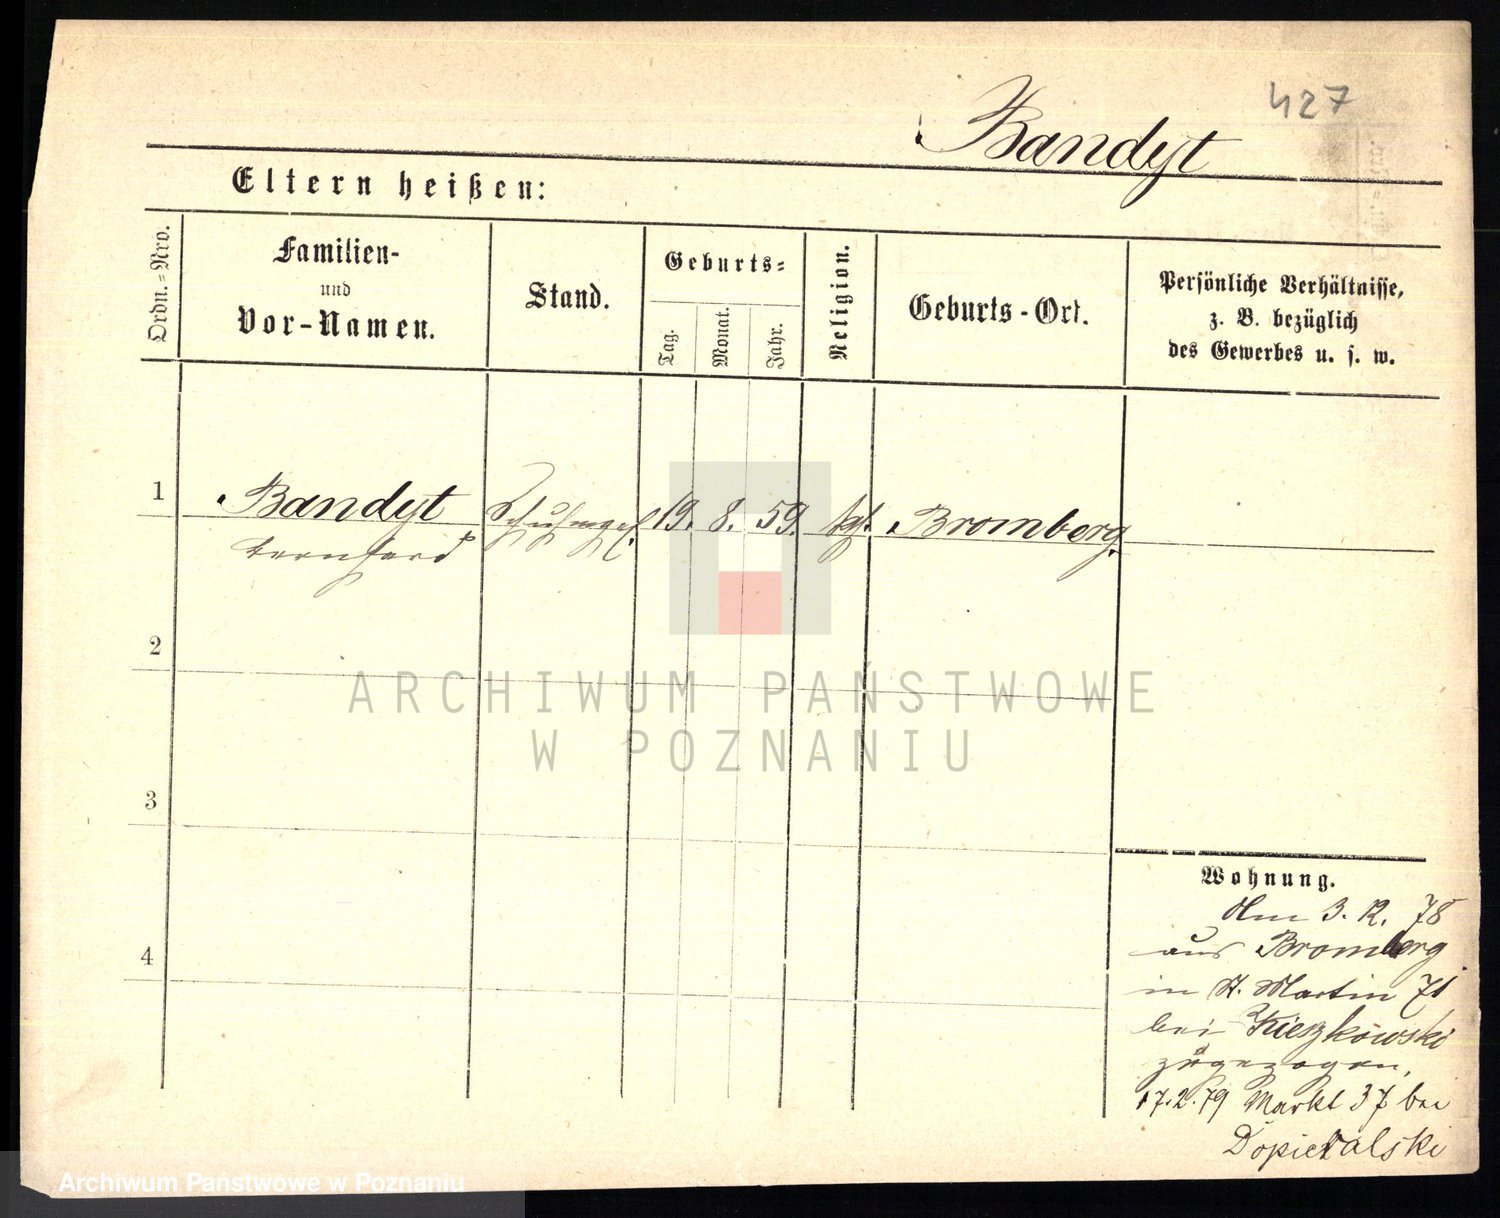 427
Bandyt
Eltern heißen:
Ordn.=Nro.
Familien-
und
Vor-Namen.
Stand.
Geburts=
Tag.
Monat.
Jahr.
Religion.
Geburts-Ort.
Persönliche Verhältnisse,
z. B. bezüglich
des Gewerbes u. s. w.
1
Bandyt
Bernhard
19. 8. 59.
Bromberg.
2
3
4
ARCHIWUM PAŃSTWOWE
W POZNANIU
Wohnung.
Am 3. 12. 78
aus Bromberg
in St. Martin 71
bei Kieszkowski
zugezogen,
17.2.79 Markt 37 bei
Archiwum Państwowe w Poznaniu